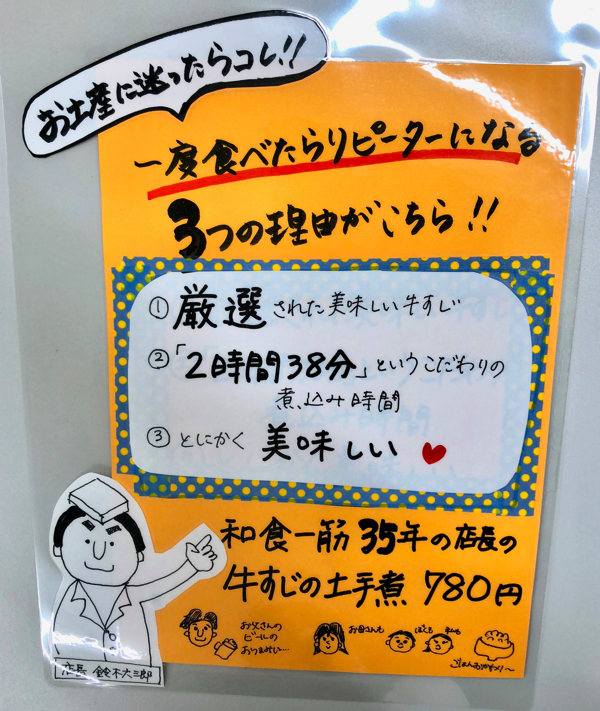 お土産に迷ったらコレ!!
一度食べたらリピーターになる
3つの理由がこちら!!
① 厳選された美味しい牛すじ
② 「2時間38分」というこだわりの
煮込み時間
③ とにかく 美味しい
和食一筋 35年の店長の
牛すじの土手煮 780円
お父さんの
ビールの
おつまみに…
お母さんも
ぼくも
ごはんおかわり〜
店長 鈴木大三郎